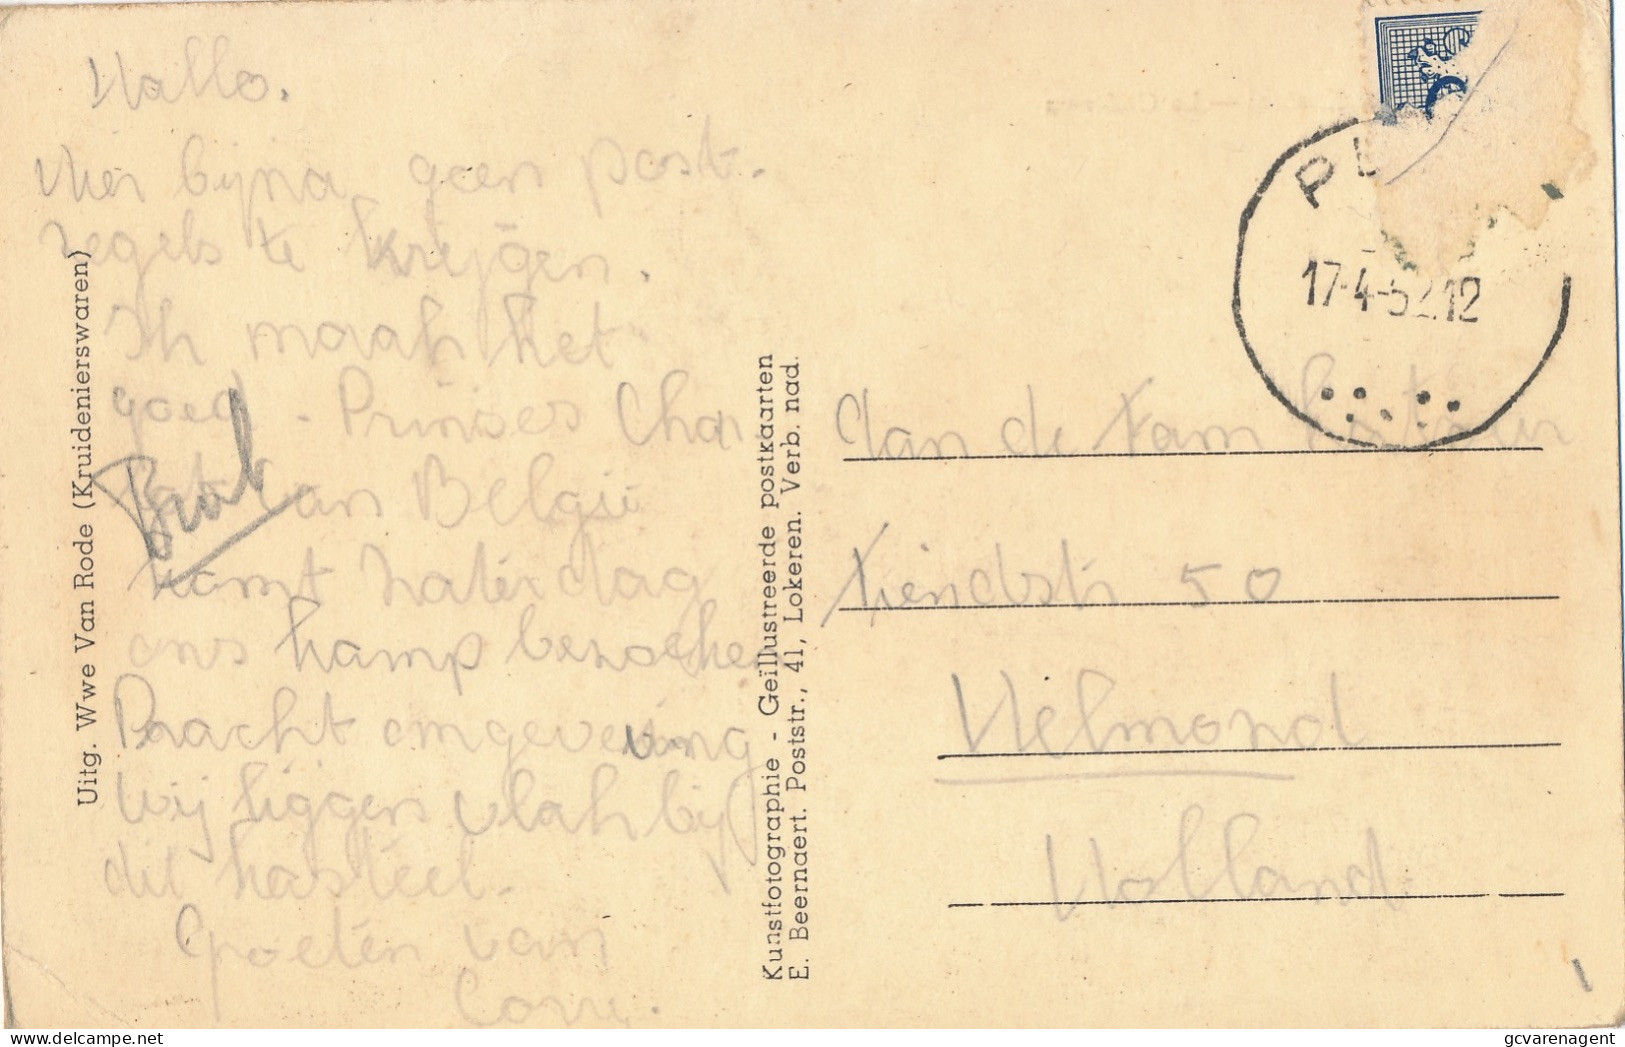 Hallo.
Hier bijna geen post.
zegels te krijgen.
Ik maak het
goed - Prinses Char
lot van België
komt zaterdag
ons kamp bezoeken
Pracht omgeving
Wij liggen vlak bij
dit kasteel.
Groeten van
Corrie.
Brab
Uitg. Wwe Van Rode (Kruidenierswaren)
Kunstfotographie - Geïllustreerde postkaarten
E. Beernaert. Poststr., 41, Lokeren. Verb. nad.
17-4-52.12
Aan de Fam
50
Helmond
Holland
gcvarenagent